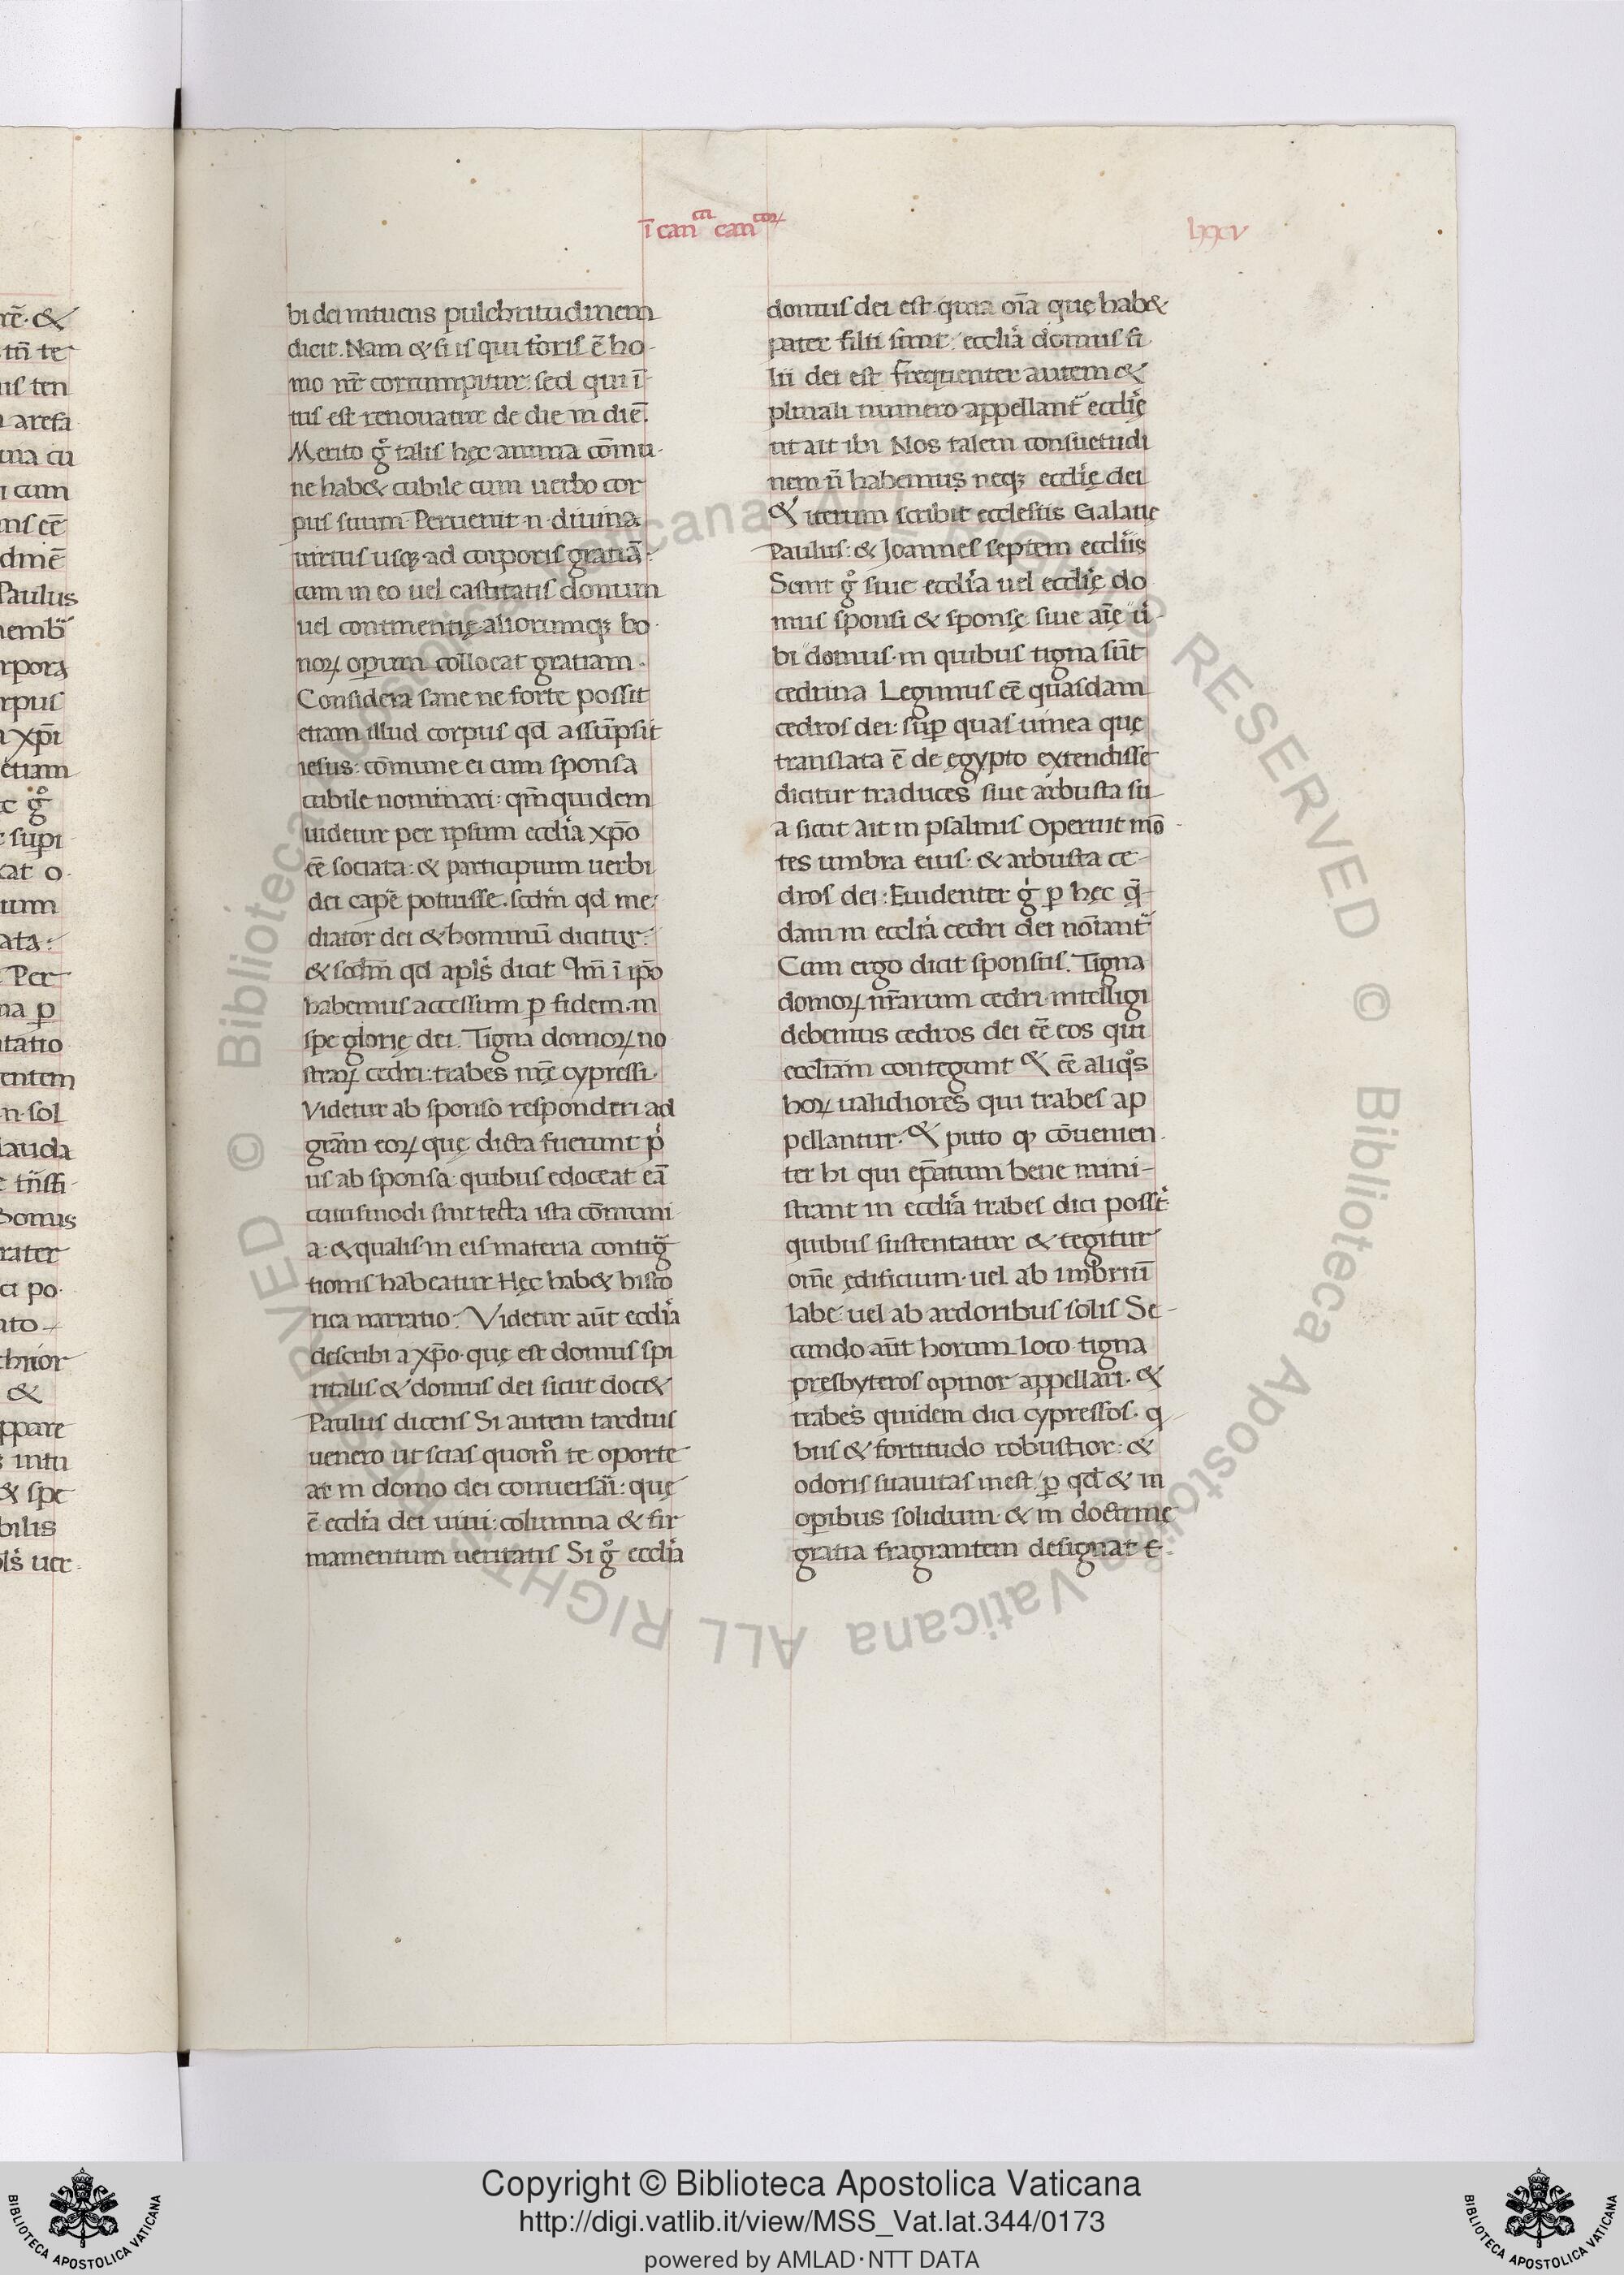 ī can^ci can^coꝝ
lxxv
bi dei intuens pulchritudinem
dicit. Nam & si is qui foris ē ho-
mo nr̄ corrumpitur: sed qui ī-
tus est renouatur de die in diē.
Merito g̊ talis hęc anima cōmu-
ne hab& cubile cum uerbo cor
pus suum Peruenit n̄ diuina
uirtus usq; ad corporis gratiā:
cum in eo uel castitatis donum
uel continentię aliorumq; bo-
noꝝ operum collocat gratiam.
Considera sane ne forte possit
etiam illud corpus qd assūpsit
iesus: cōmune ei cum sponsa
cubile nominari: qm̄ quidem
uidetur per ipsum eccl̄ia xp̄o
eē sociata: & participium uerbi
dei capē potuisse. scdm̄ qd me-
diator dei & hominū dicitur:
& scdm̄ qd apl̄s dicit Qm̄ ī ip̄o
habemus accessum ꝑ fidem. in
spe glorię dei. Tigna domoꝝ no
straꝝ cedri: trabes nr̄ę cypressi.
Videtur ab sponso responderi ad
gr̄am eoꝝ quę dicta fuerunt pͥ
us ab sponsa: quibus edoceat eā
cuiusmodi sint tecta ista cōmuni
a: & qualis in eis materia contig̃
tionis habeatur Hęc hab& histo
rica narratio: Videtur aūt eccl̄ia
describi a xp̄o. quę est domus spi
ritalis & domus dei sicut doc&
Paulus dicens Si autem tardius
uenero ut scias quom̊ te oporte
at in domo dei conuersāi: quę
ē eccl̄ia dei uiui: columna & fir
mamentum ueritatis Si g̊ eccl̄ia
domus dei est. quia oīa quę hab&
pater filii sunt: eccl̄ia domus fi
lii dei est frequenter autem &
plurali numero appellant̃ eccl̄ię
ut ait ibi Nos talem consuetudi
nem n̄ habemus neq; eccl̄ię dei
& iterum scribit ecclesiis Galatię
Paulus: & Joannes septem eccl̄iis
Sunt g̊ siue eccl̄ia uel eccl̄ię do
mus sponsi & sponsę siue aīę ů-
bi domus. in quibus tigna sūt
cedrina Legimus eē quasdam
cedros dei: sup̄ quas uinea quę
translata ē de ęgypto extendisse
dicitur traduces siue arbusta su
a sicut ait in psalmis Operuit mō-
tes umbra eius. & arbusta ce-
dros dei: Euidenter g̊ ꝑ hęc q̃-
dam in eccl̄ia cedri dei noīant̃
Cum ergo dicit sponsus. Tigna
domoꝝ nr̄arum cedri. intelligi
debemus cedros dei eē eos qui
eccl̄iam contegunt & eē aliq̊s
hoꝝ ualidiores qui trabes ap
pellantur. & puto ꝙ cōuenien-
ter hi qui ep̄atum bene mini-
strant in eccl̄ia trabes dici possēt
quibus sustentatur & tegitur
om̄e ędificium. uel ab imbriū
labe: uel ab ardoribus solis Se-
cundo aūt horum loco tigna
presbyteros opinor appellari. &
trabes quidem dici cypressos. q
bus & fortitudo robustior: & 
odoris suauitas inest. ꝑ qd & in
opibus solidum. & in doctrinę
gratia fragrantem designat E-
Copyright © Biblioteca Apostolica Vaticana
http://digi.vatlib.it/view/MSS_Vat.lat.344/0173
powered by AMLAD·NTT DATA
BIBLIOTECA APOSTOLICA VATICANA
BIBLIOTECA APOSTOLICA VATICANA